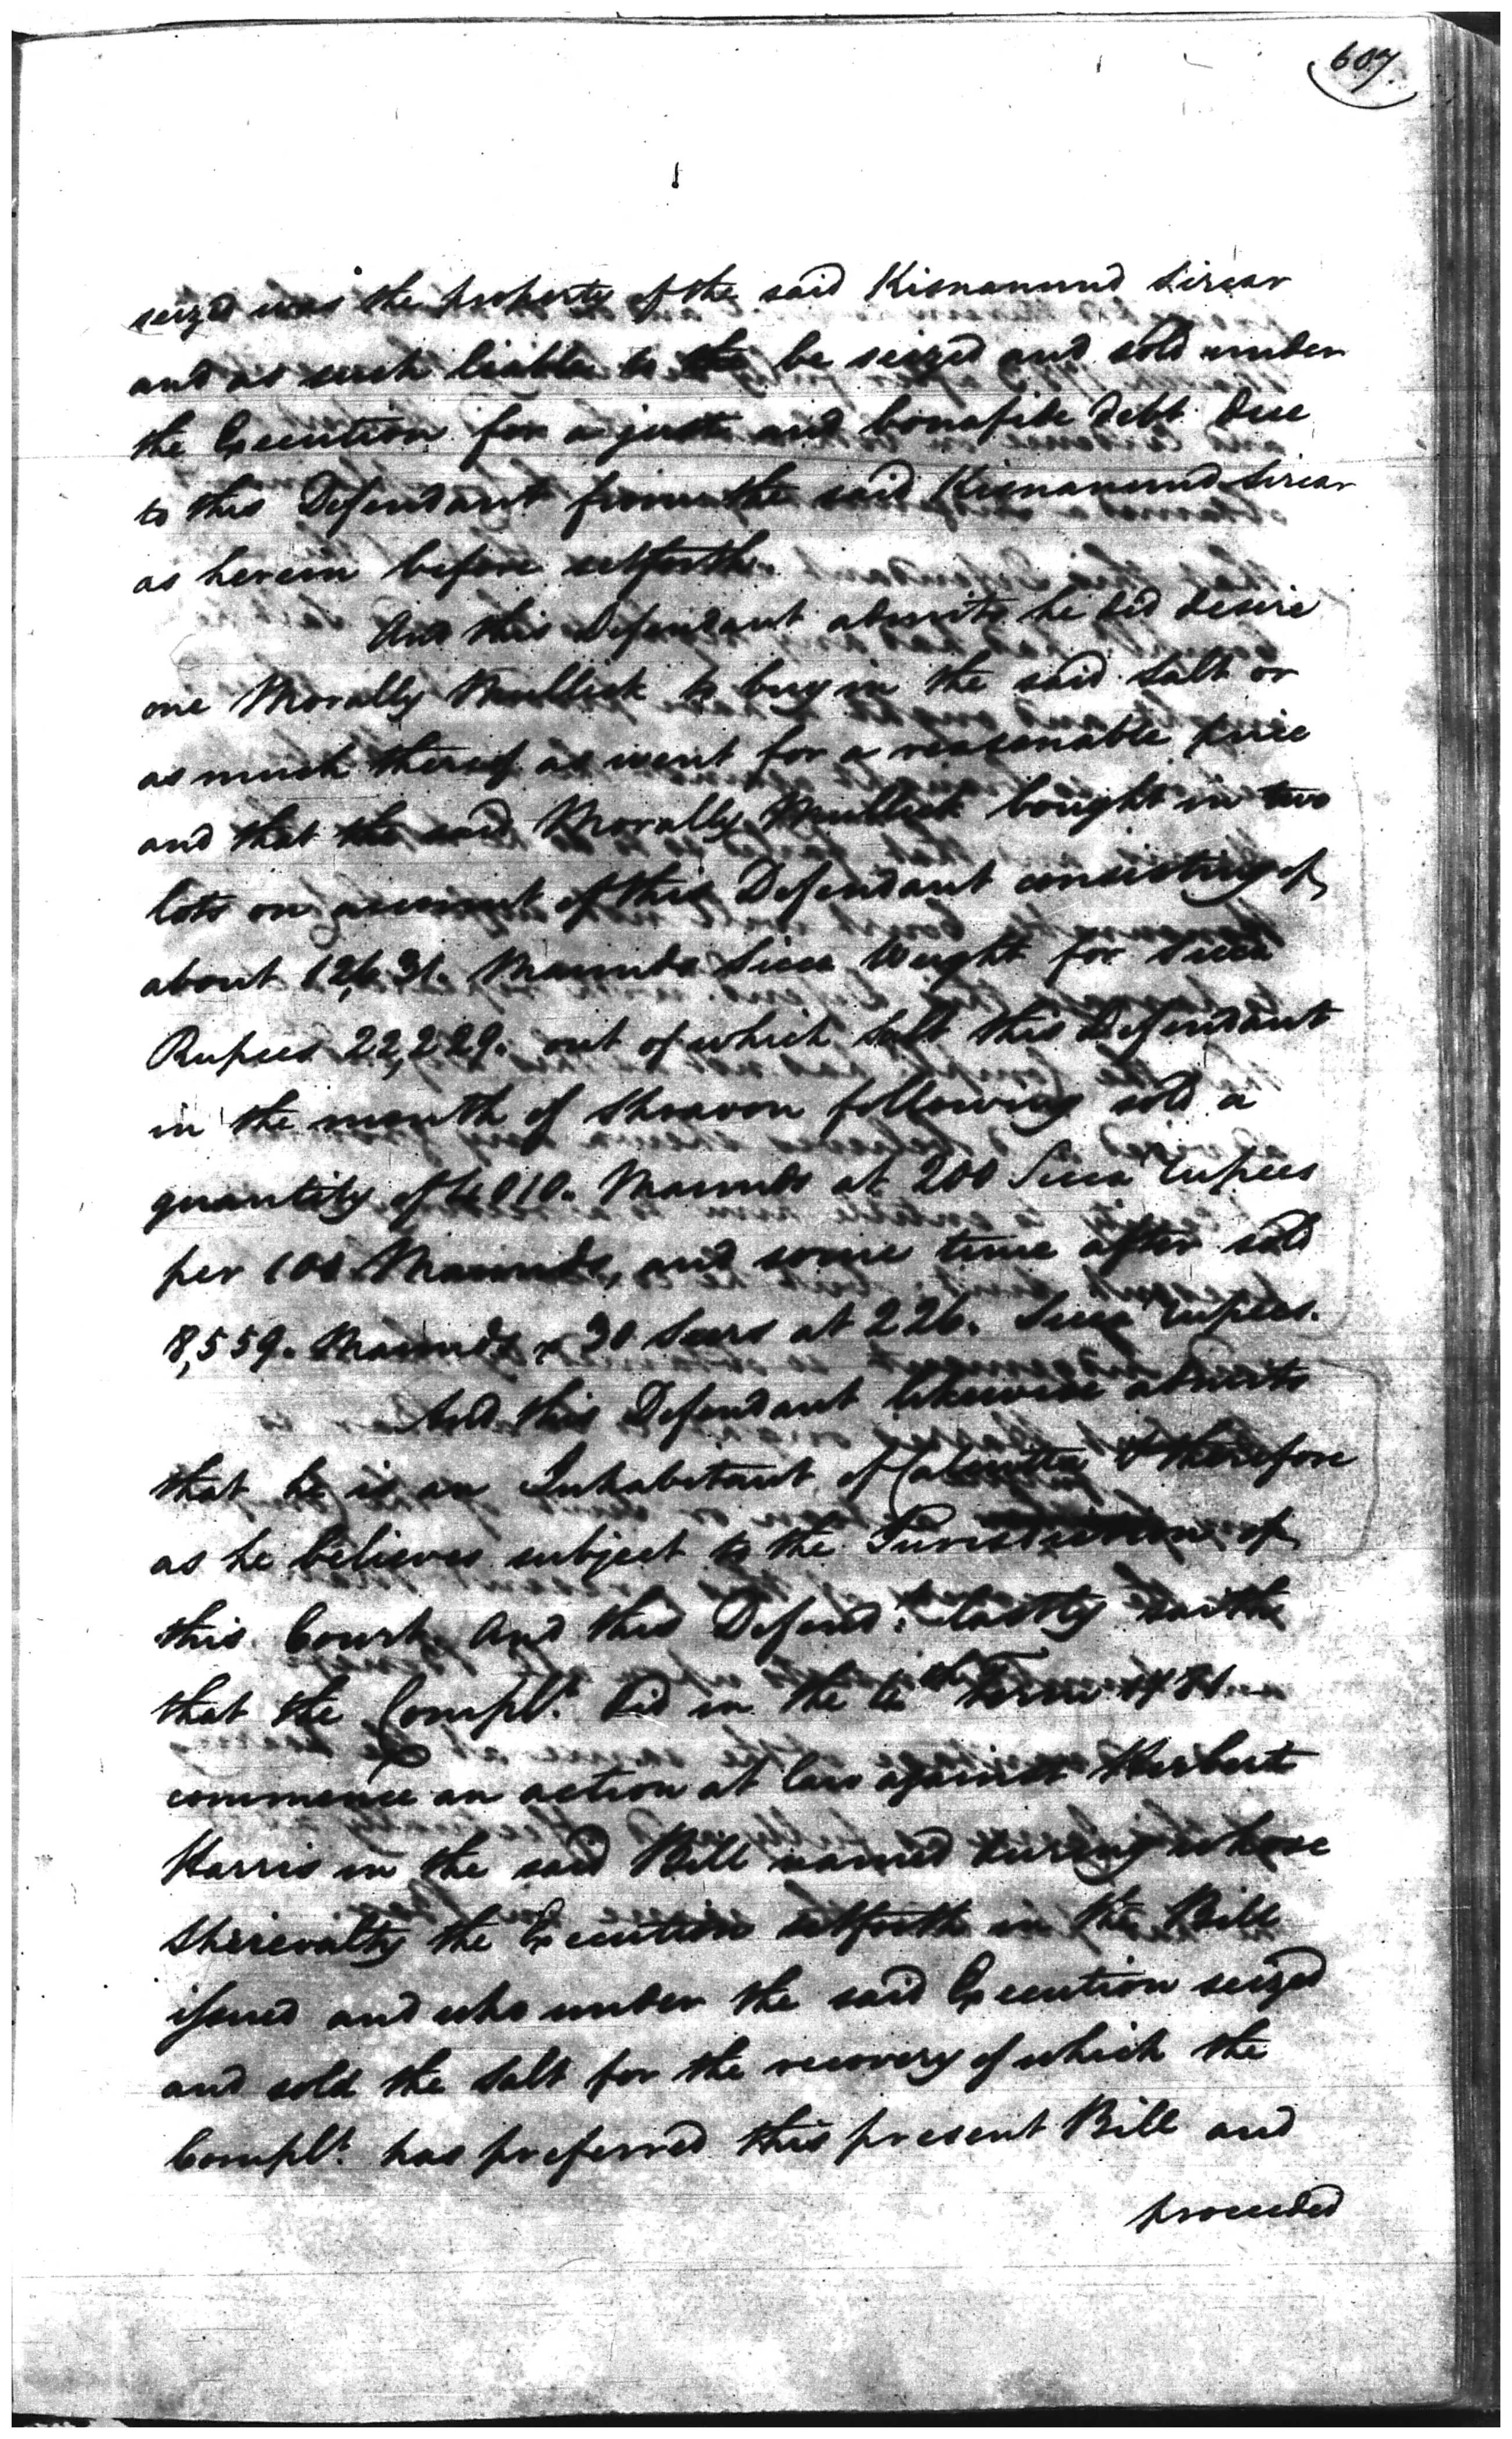 607
seized was the property of the said Kisnanund Sircar
and as such liable to the be seized and sold under
the Execution for a just and bonafide debt due
to this Defendant from the said Kisnanund Sircar
as herein before setforth.
And this Defendant admits he did desire
one Morally Mullick to buy in the said Salt or
as much thereof as went for a reasonable price
and that the said Morally Mullick bought in two
lots on account of this Defendant consisting of
about 12,631. Maunds Sicca Weight for Sicca
Rupees 22,229. out of which Salt this Defendant
in the month of Shravon following sold a
quantity of 4010. Maunds at 200 Sicca rupees
per 100 Maunds, and some time after sold
8,559. Maunds & 30 Seers at 226. Sicca rupees.
And this Defendant likewise admits
that he is an Inhabitant of Calcutta & therefore
as he believes subject to the Jurisdiction of
this Court. And this Defend.t lastly saith
that the Compl.t did in the 4th Term 1781
commence an action at law against Herbert
Harris in the said Bill named during whose
Shirevalty the Execution setforth in the Bill
issued and who under the said Execution seized
and sold the Salt for the recovery of which the
Compl.t has preferred this present Bill and
proceeded